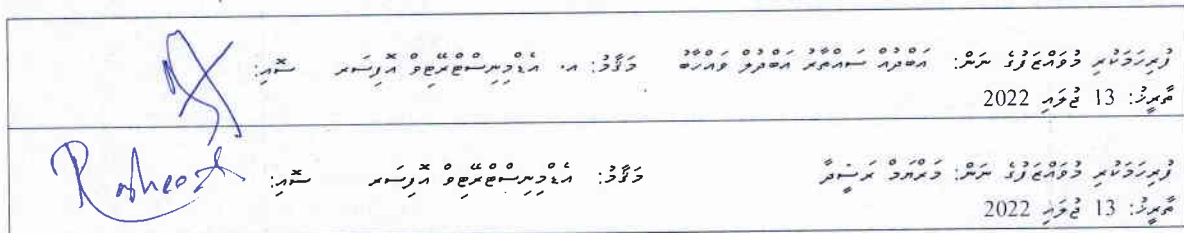 ފުރިހަމަކުރި މުވައްޒަފުގެ ނަން: އަބްދުއް ސައްތާރު އަބްދުލް ވައްހާބު މަޤާމު: އ. އެޑްމިނިސްޓްރޭޓިވް އޮފިސަރ ސޮއި:
ތާރީޚު: 13 ޖުލައި 2022
ފުރިހަމަކުރި މުވައްޒަފުގެ ނަން: މަރްޔަމް ރަޝީދާ މަޤާމު: އެޑްމިނިސްޓްރޭޓިވް އޮފިސަރ ސޮއި:
ތާރީޚު: 13 ޖުލައި 2022